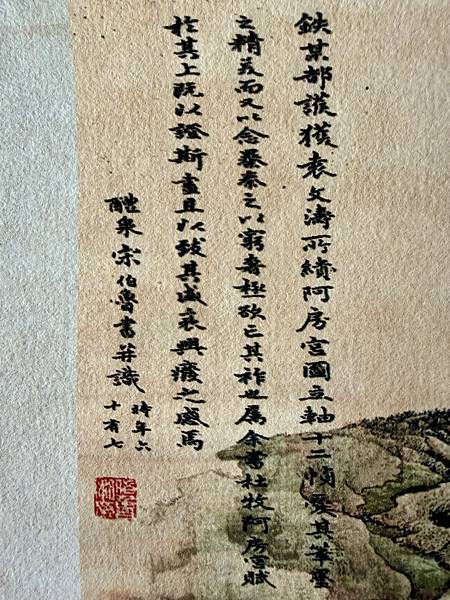 鉄某都護獲袁文濤所繢阿房宮圖立軸十二幀愛其筆墨
之精美而又以念暴秦之以窮奢極欲亡其祚也屬余書杜牧阿房宮賦
於其上既以證斯畫且以致其盛衰興廢之感焉
醴泉宋伯魯書并識
時年六
十有七